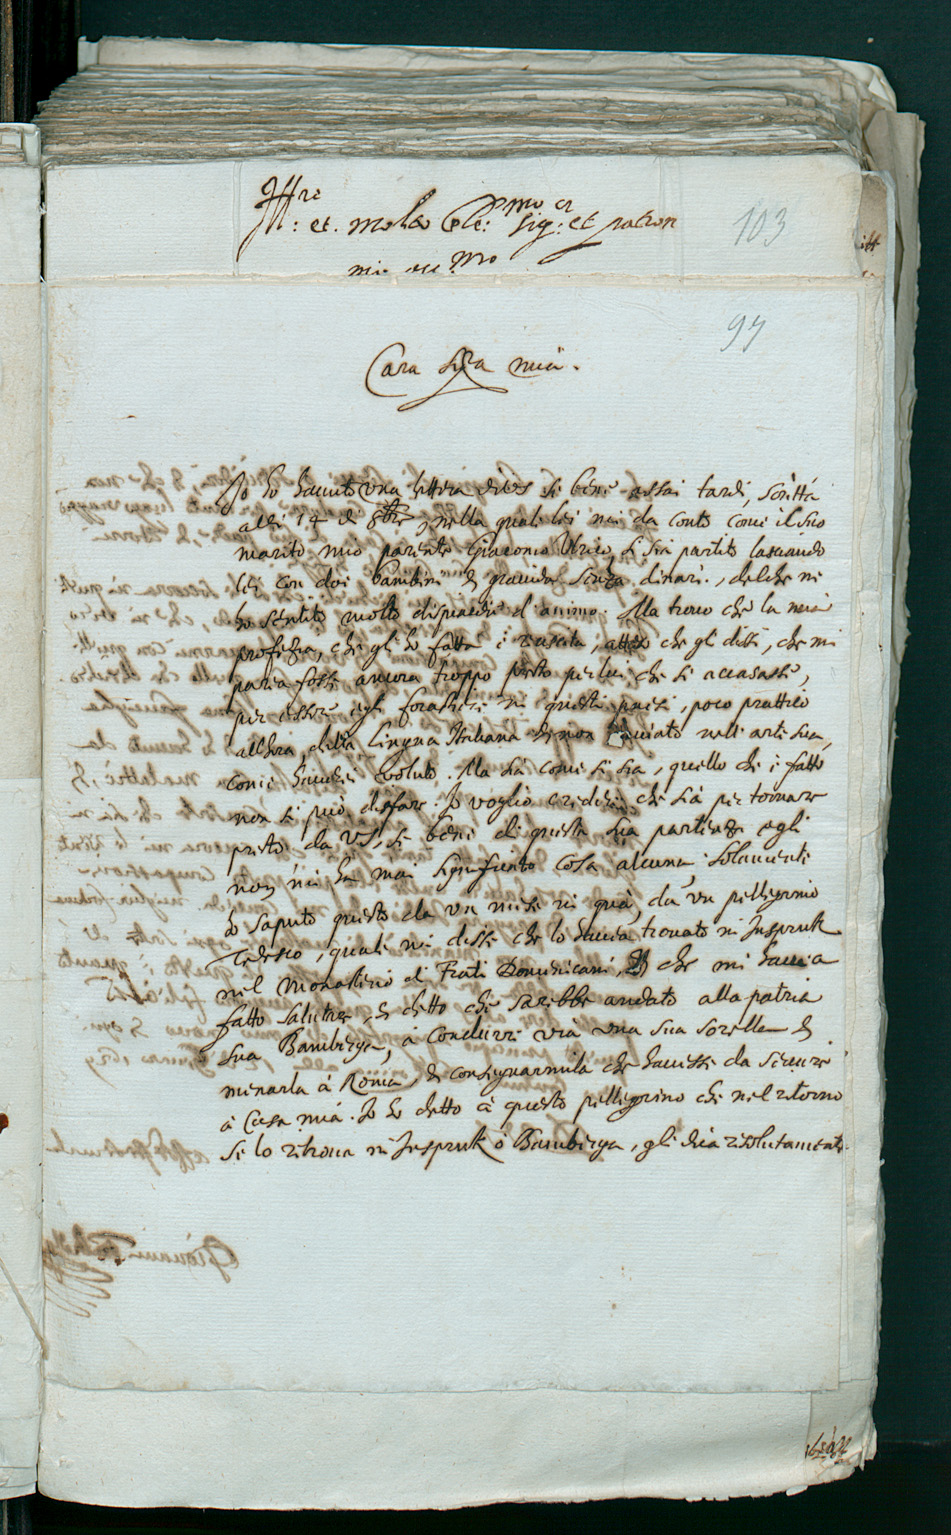 Ill.re et molto Ecle: mo sig:r et patron
mio
103
97
Cara sig.ra mia.
Io ho hauuto una lettera di VS se bene assai tardi, scritta
alli 14 di 8bre, nella quale lei mi da conto come il suo
marito mio parente Giacomo Vrico, si sia partito lasciando
lei con doi bambini et grauida senza dinari, del che ni
ho sentito molto dispiacere d'animo. Ma trouo che la mia
profezia, che gli ho fatta è riuscita, atteso che gli dissi, che mi
paria fosse ancora troppo presto per lui che si accasasse,
per essere egli forastiere in questi paesi, poco prattico
allhora della lingua Italiana et non auiato nell'arte sua,
come hauerei voluto. Ma sia come si sia, quello che è fatto
non si può disfare. Io voglio credere che sia per tornare
presto da VS, se bene di questa sua partenza egli
non mi ha mai significato cosa alcuna, solamente
ho saputo questo da un mese in quà, da un pellegrino
Tedesco, quale mi disse che lo hauea trouato in Inspruk
nel monasterio di Frati Domenicani, et che mi hauea
fatto salutare, et detto che sarebbe andato alla patria
sua Bamberga, à condurre via una sua sorella et
menarla à Roma, et consegnarmila che hauesse da seruire
à casa mia. Io ho detto à questo pellegrino che nel ritorno
se lo ritroua in Inspruk ò Bamberga, gli dica risolutamente